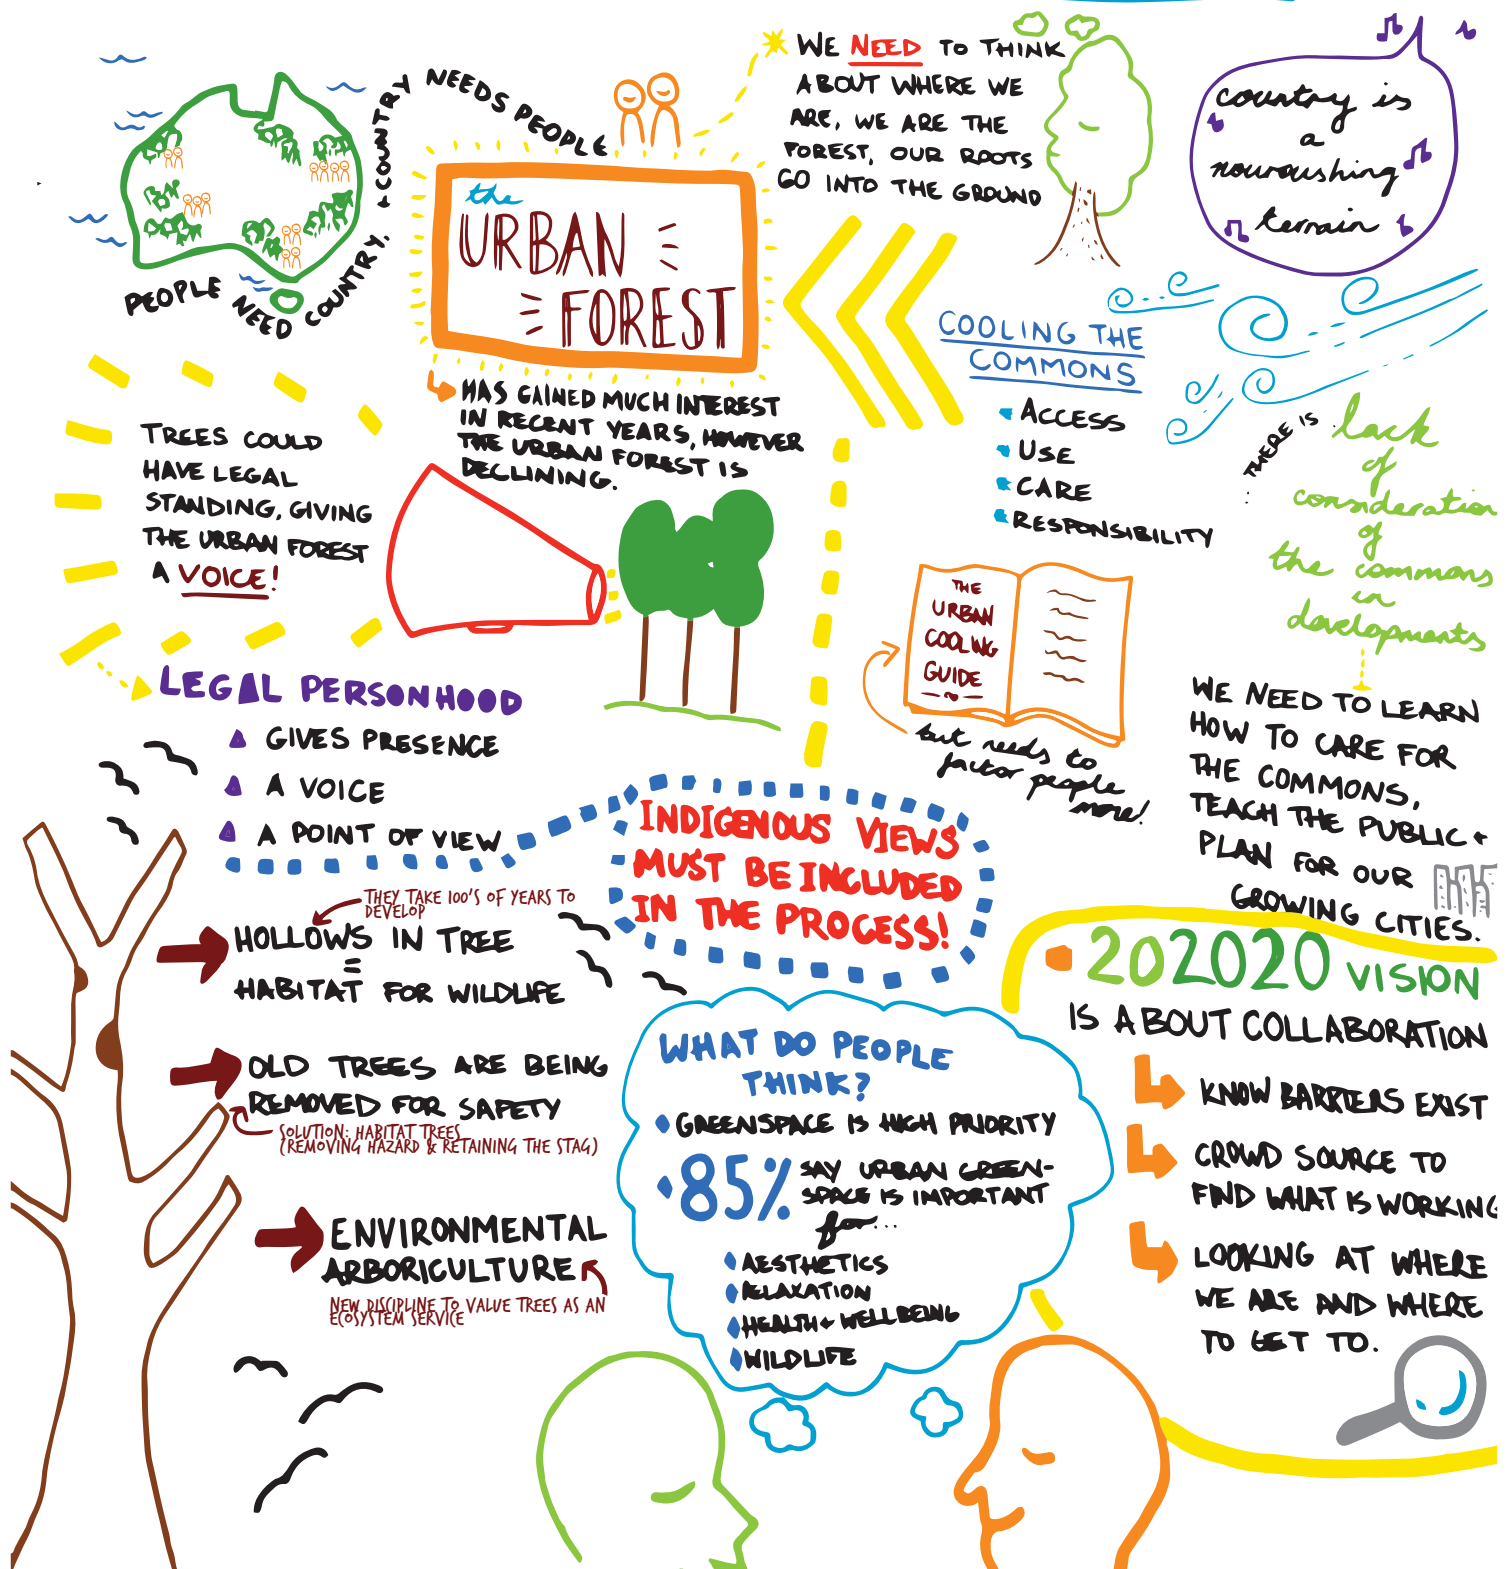 PEOPLE NEED COUNTRY, + COUNTRY NEEDS PEOPLE
the
URBAN
FOREST
HAS GAINED MUCH INTEREST
IN RECENT YEARS, HOWEVER
THE URBAN FOREST IS
DECLINING.
WE NEED TO THINK
ABOUT WHERE WE
ARE, WE ARE THE
FOREST, OUR ROOTS
GO INTO THE GROUND
country is
a
nouroushing
terrain
TREES COULD
HAVE LEGAL
STANDING, GIVING
THE URBAN FOREST
A VOICE!
LEGAL PERSONHOOD
GIVES PRESENCE
A VOICE
A POINT OF VIEW
COOLING THE
COMMONS
ACCESS
USE
CARE
RESPONSIBILITY
... THERE IS
lack
of
consideration
of
the commons
in
developments
THE
URBAN
COOLING
GUIDE
but needs to
factor people
more!
WE NEED TO LEARN
HOW TO CARE FOR
THE COMMONS,
TEACH THE PUBLIC +
PLAN FOR OUR
GROWING CITIES.
INDIGENOUS VIEWS
MUST BE INCLUDED
IN THE PROCESS!
THEY TAKE 100'S OF YEARS TO
DEVELOP
HOLLOWS IN TREE
=
HABITAT FOR WILDLIFE
OLD TREES ARE BEING
REMOVED FOR SAFETY
SOLUTION: HABITAT TREES
(REMOVING HAZARD & RETAINING THE STAG)
ENVIRONMENTAL
ARBORICULTURE
NEW DISCIPLINE TO VALUE TREES AS AN
ECOSYSTEM SERVICE
WHAT DO PEOPLE
THINK?
GREENSPACE IS HIGH PRIORITY
85% SAY URBAN GREEN-
SPACE IS IMPORTANT
for...
AESTHETICS
RELAXATION
HEALTH + WELLBEING
WILDLIFE
202020 VISION
IS ABOUT COLLABORATION
KNOW BARRIERS EXIST
CROWD SOURCE TO
FIND WHAT IS WORKING
LOOKING AT WHERE
WE ARE AND WHERE
TO GET TO.